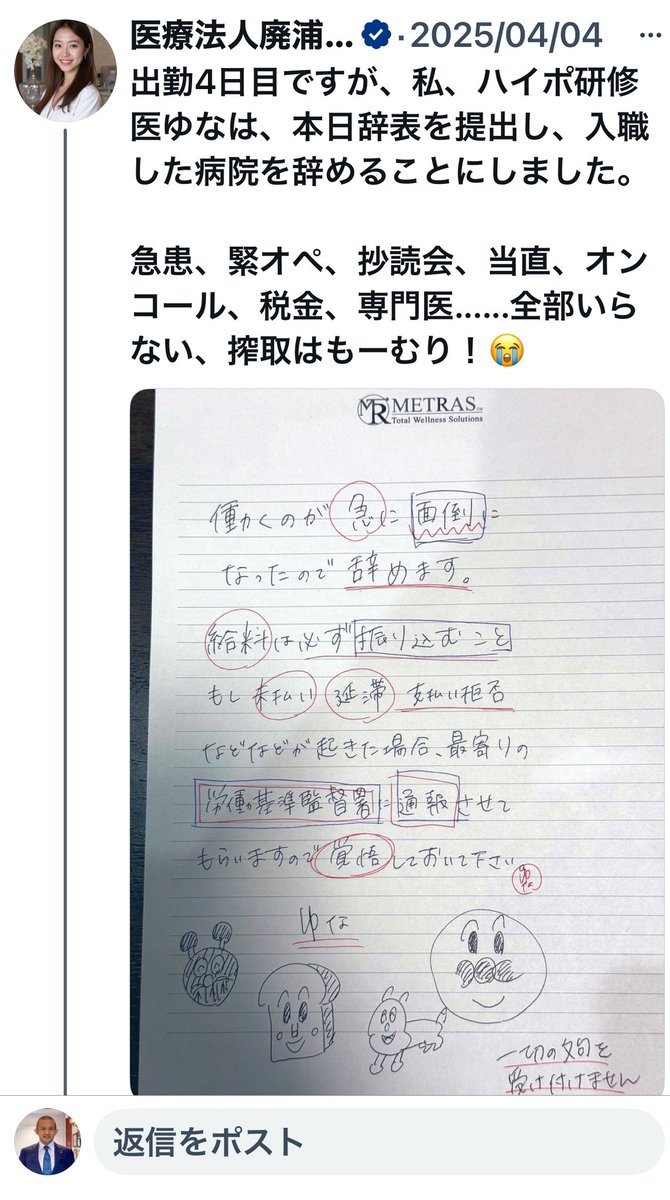 医療法人廃浦... ·2025/04/04 ...
出勤4日目ですが、私、ハイポ研修
医ゆなは、本日辞表を提出し、入職
した病院を辞めることにしました。
急患、緊オペ、抄読会、当直、オン
コール、税金、専門医......全部いら
ない、搾取はもーむり！😭
MR METRAS™
Total Wellness Solutions
働くのが急に面倒に
なったので辞めます。
給料は必ず振り込むこと
もし未払い 延滞 支払い拒否
などなどが起きた場合、最寄りの
労働基準監督署に通報させて
もらいますので覚悟しておいて下さい
ゆな
ゆな
一切の文句を
受け付けません
返信をポスト